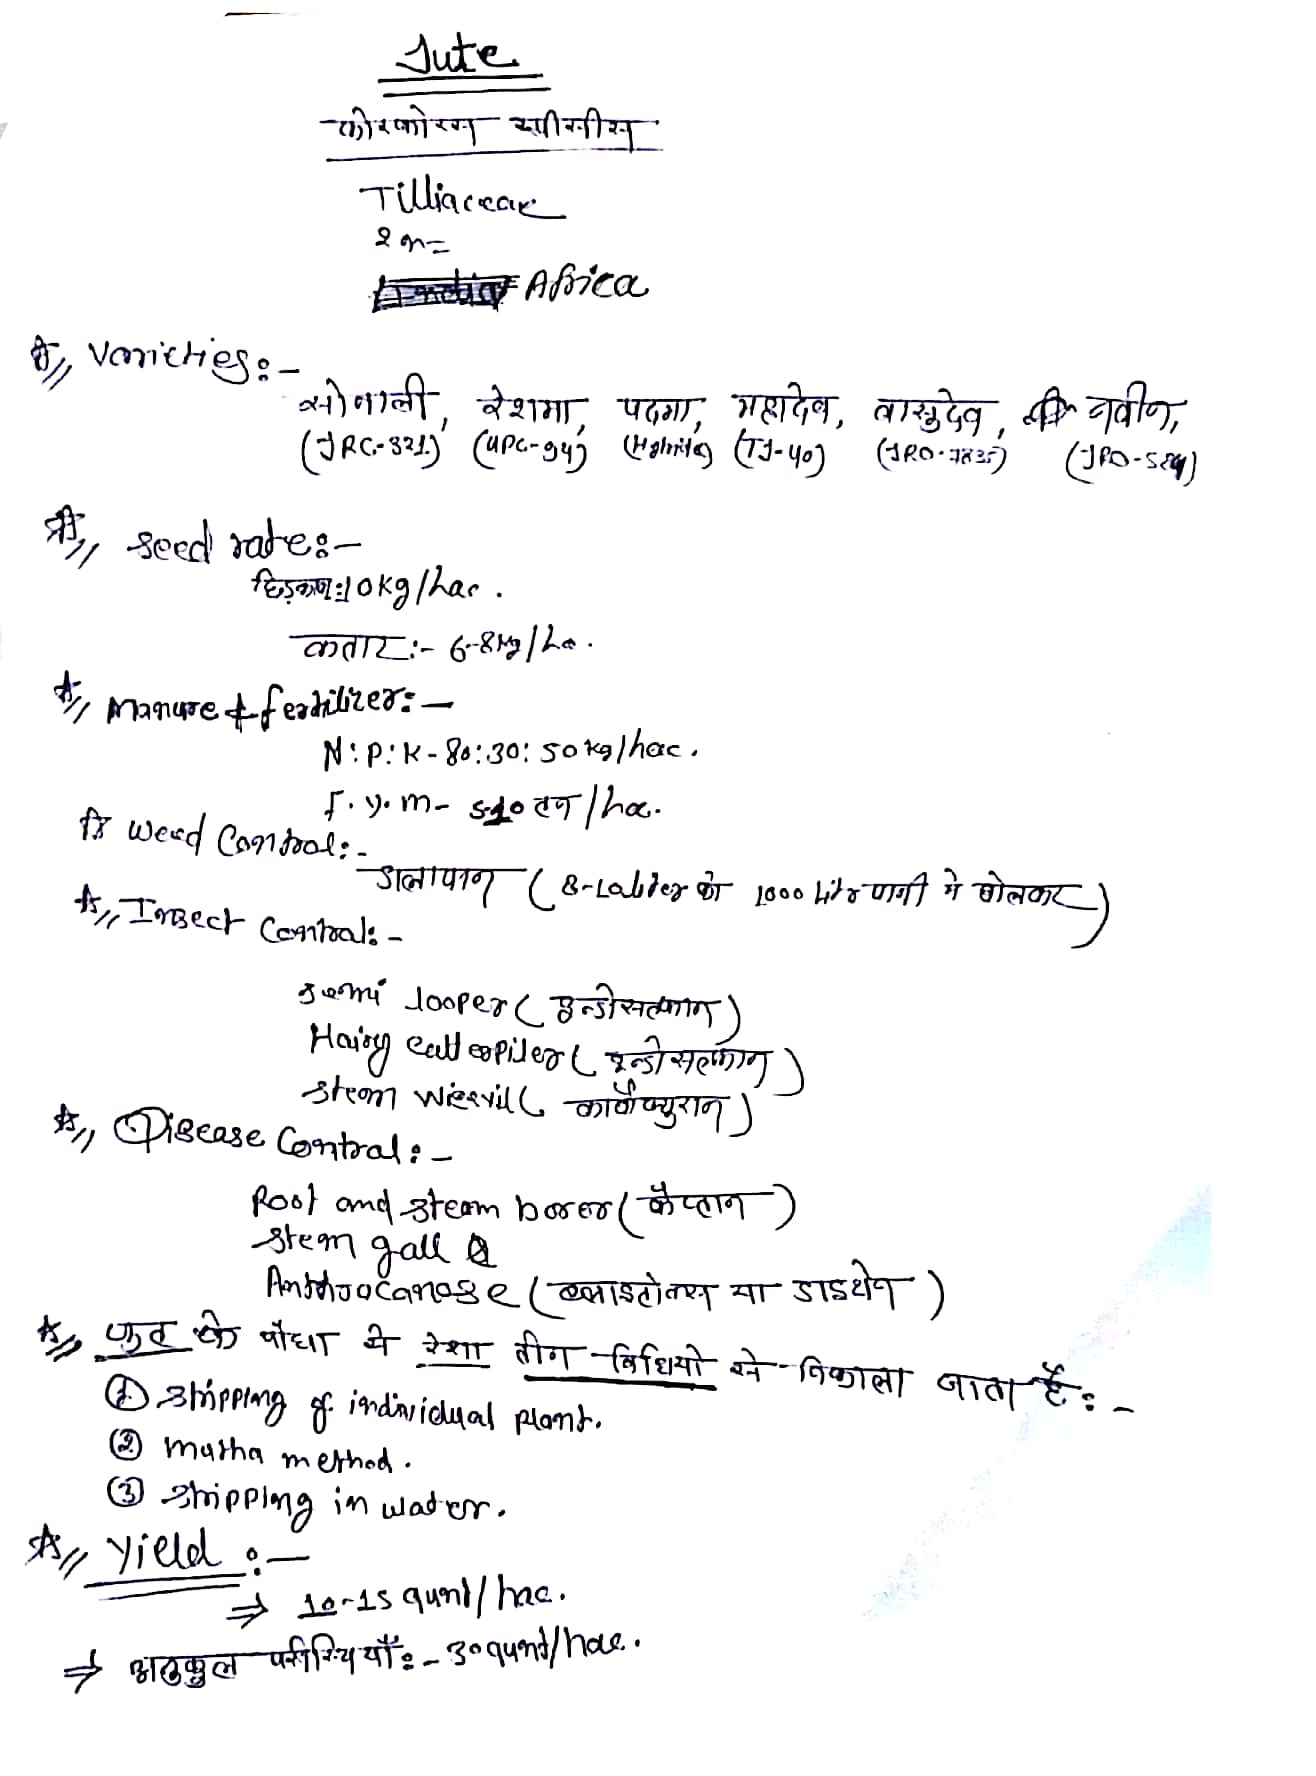 Jute
कोरकोरस स्पीसीस
Tilliaceae
2n=
Africa
Varieties:-
सोनाली, रेशमा, पदमा, महादेव, वासुदेव, नवीन,
(JRC-321) (UPC-94) (TJ-40) (JRO-7835) (JRO-524)
Seed rate:-
छिड़काव:10kg/hac.
कतार:- 6-8kg/ha.
Manure & fertilizer:-
N:P:K-80:30:50kg/hac.
F.y.m- 5-10 टन/ha.
Weed Control:-
डालापान (8-Laliter को 1000 Litr पानी मे घोलकर)
Insect Control:-
Semi looper (इन्डोसल्फान)
Hairy catterpiler (इन्डोसल्फान)
Steam Wieevil (कार्बोफ्युरान)
Disease Control:-
Root and steam borer (कैप्टान)
Stem gall &
Anthrocanose (ब्लाइटोक्स या डाइथेन)
जुट के पौधा मे रेशा तीन विधियो से निकाला जाता है:-
① Stripping of individual plant.
② Mutha method.
③ Stripping in water.
Yield:-
⇒ 10-15 qunt/hac.
⇒ अनुकुल परीस्थियाँ:- 30 qunt/hac.